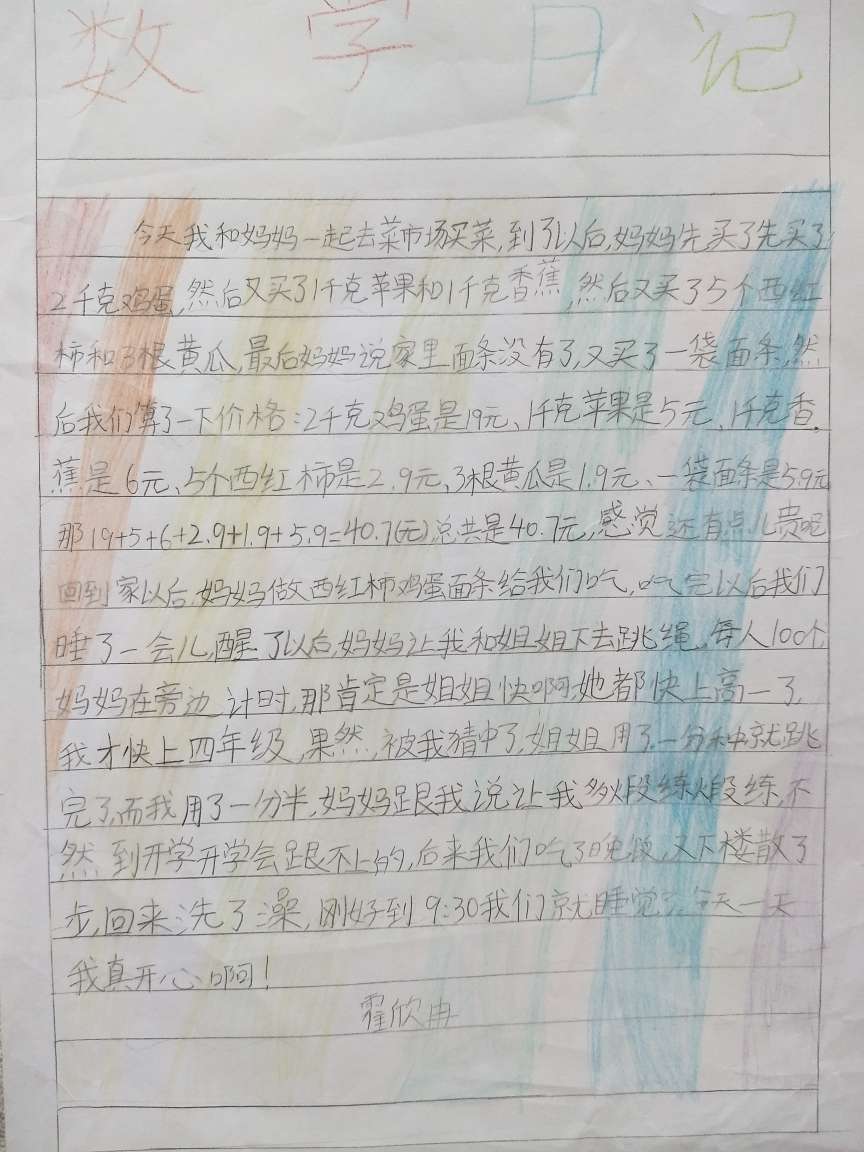 数学日记
今天我和妈妈一起去菜市场买菜,到了以后,妈妈先买了先买了
2千克鸡蛋,然后又买了1千克苹果和1千克香蕉,然后又买了5个西红
柿和3根黄瓜,最后妈妈说家里面条没有了,又买了一袋面条,然
后我们算了一下价格:2千克鸡蛋是19元、1千克苹果是5元、1千克香
蕉是6元、5个西红柿是2.9元、3根黄瓜是1.9元、一袋面条是5.9元
那19+5+6+2.9+1.9+5.9=40.7(元)总共是40.7元,感觉还有点儿贵呢
回到家以后,妈妈做西红柿鸡蛋面条给我们吃,吃完以后我们
睡了一会儿,醒了以后,妈妈让我和姐姐下去跳绳,每人100个,
妈妈在旁边计时,那肯定是姐姐快啊,她都快上高一了,
我才快上四年级,果然,被我猜中了,姐姐用了一分钟就跳
完了,而我用了一分半,妈妈跟我说让我多煅练煅练,不
然到开学开学会跟不上的,后来我们吃了晚饭,又下楼散了
步,回来洗了澡,刚好到9:30我们就睡觉了,今天一天
我真开心啊!
霍欣冉